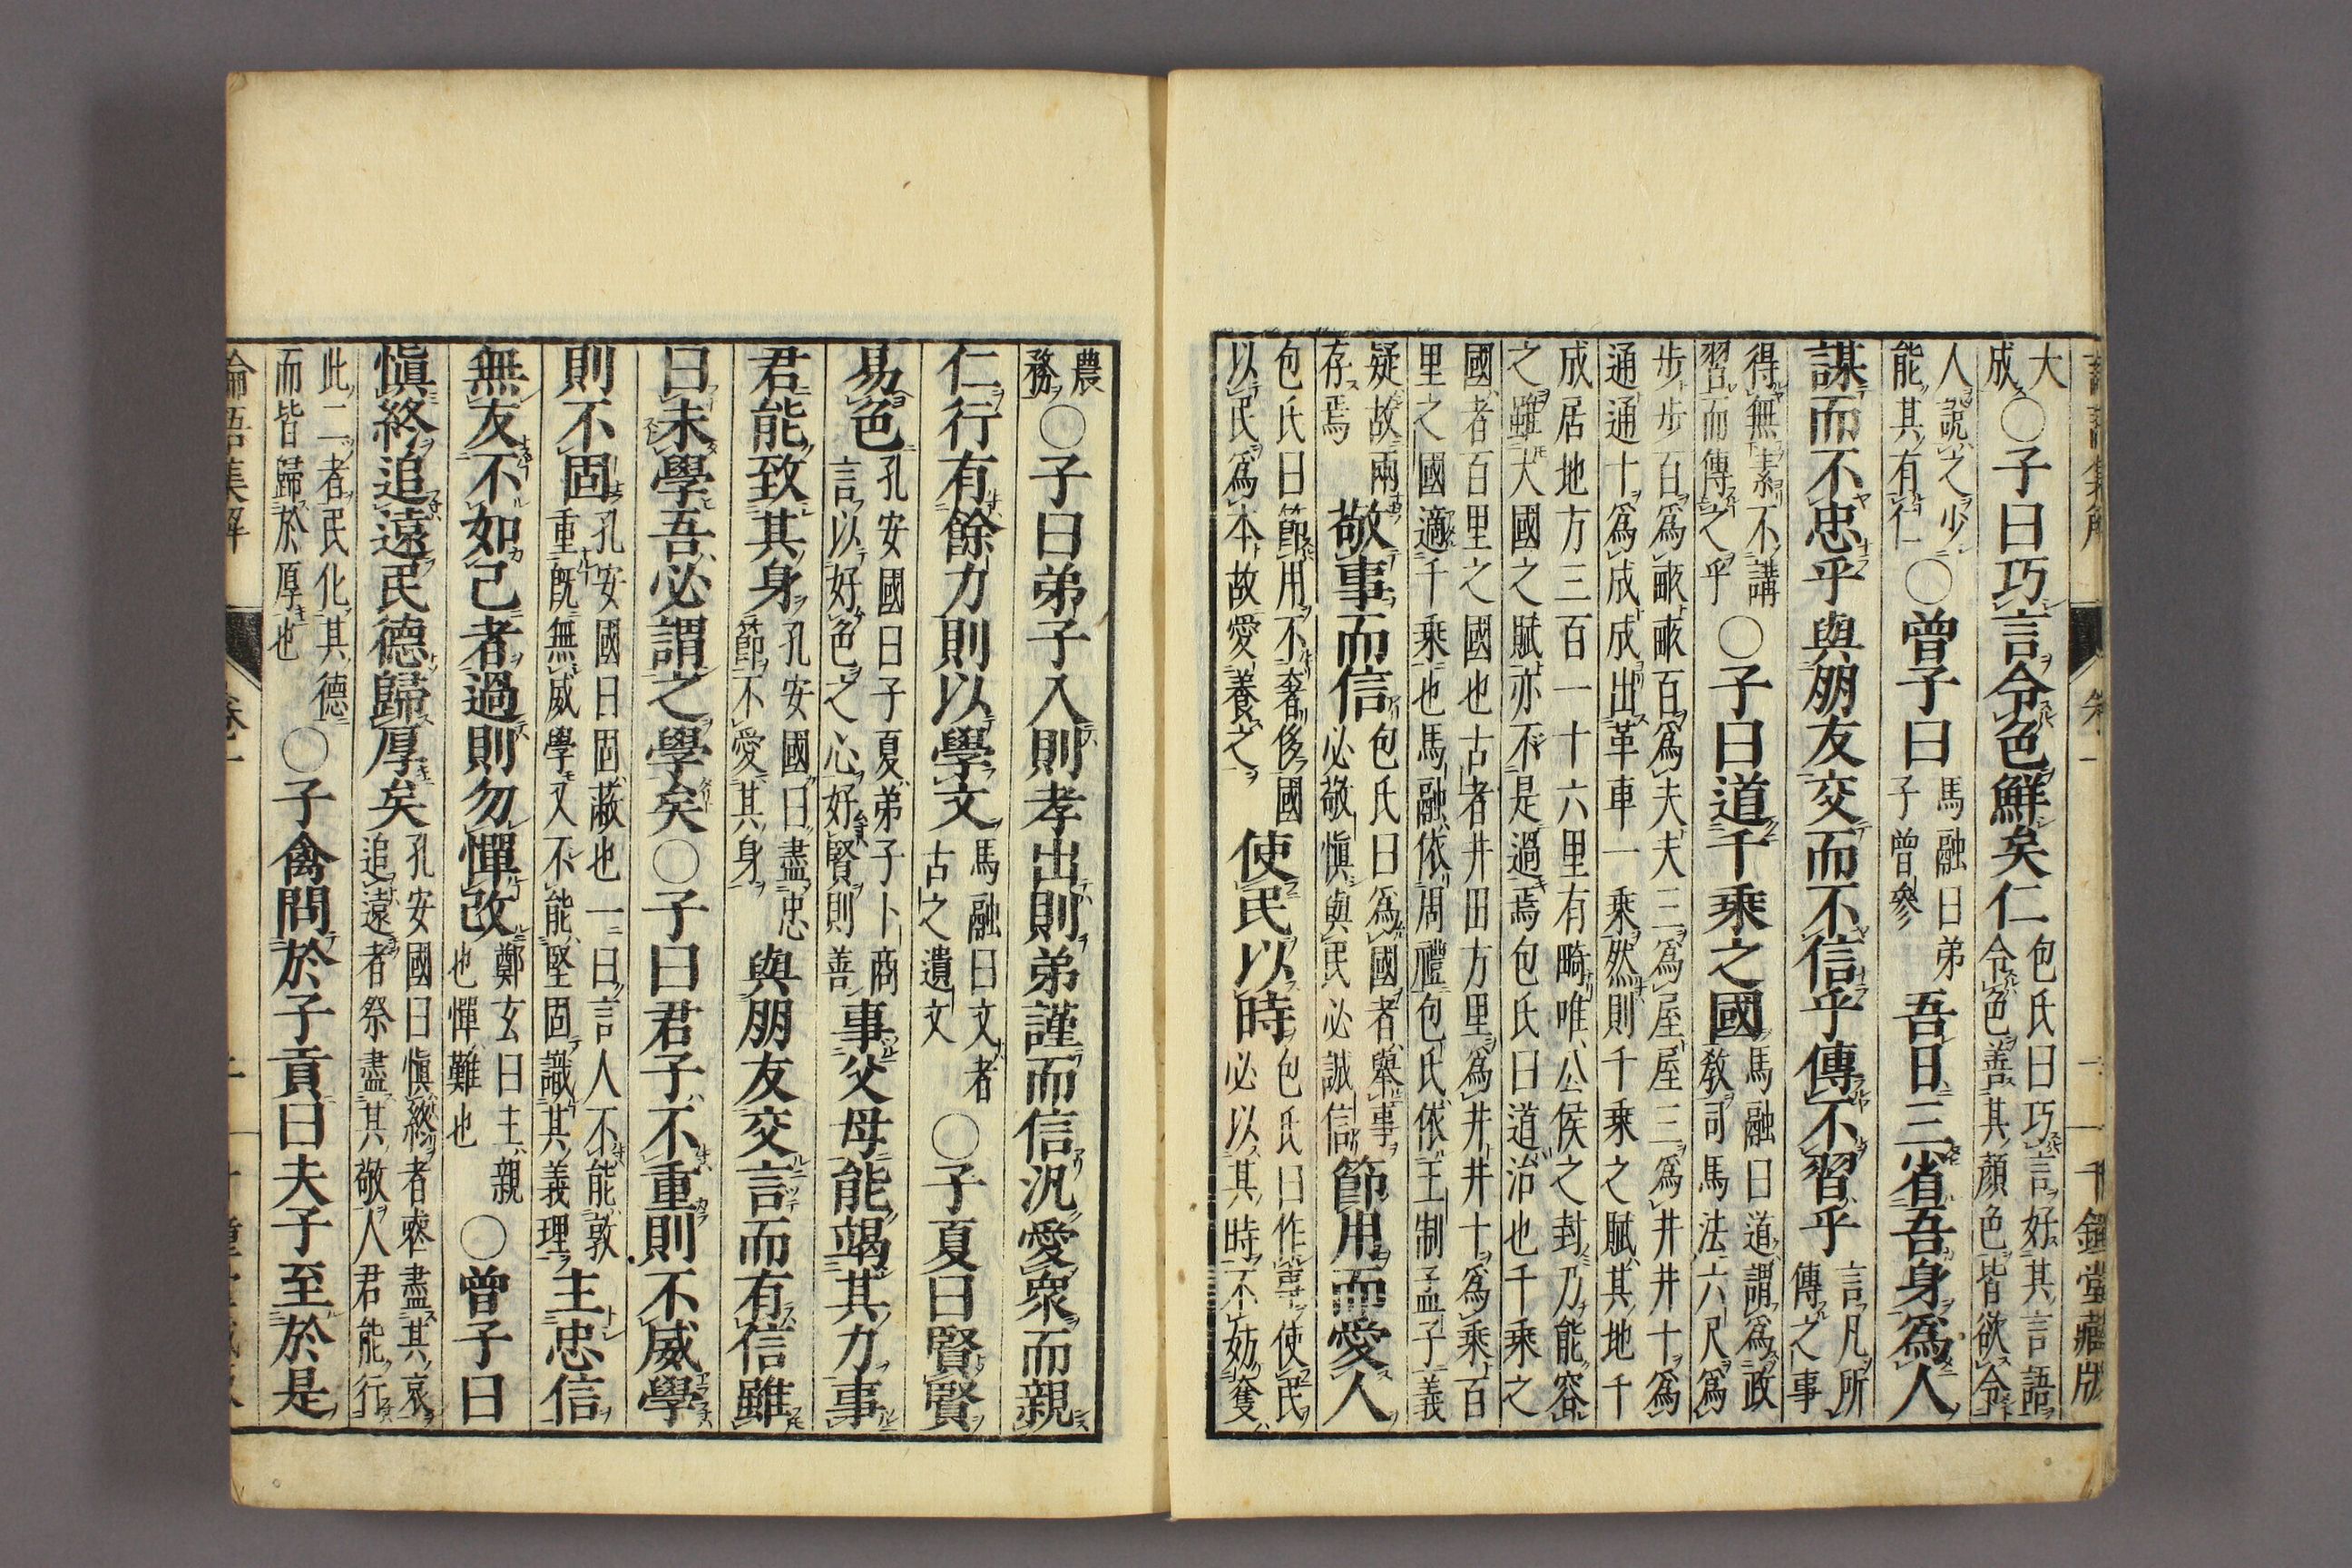 論語集解 卷一 二 千鍾堂藏版
大成〇子曰巧言令色鮮矣仁包氏曰巧言好其言語令色善其顏色皆欲令
人說之少能其有仁〇曾子曰馬融曰弟子曾參吾日三省吾身爲人
謀而不忠乎與朋友交而不信乎傳不習乎言凡所傳之事
得無素不講習而傳之乎〇子曰道千乘之國馬融曰道謂爲政敎司馬法六尺爲
步步百爲畝畝百爲夫夫三爲屋屋三爲井井十爲通通十爲成成出革車一乘然則千乘之賦其地千
成居地方三百一十六里有畸唯公侯之封乃能容之雖大國之賦亦不是過焉包氏曰道治也千乘之
國者百里之國也古者井田方里爲井井十爲乘百里之國適千乘也馬融依周禮包氏依王制孟子義
疑故兩存焉敬事而信包氏曰爲國者舉事必敬愼與民必誠信節用而愛人
包氏曰節用不奢侈國以民爲本故愛養之使民以時包氏曰作事使民必以其時不妨奪
農務〇子曰弟子入則孝出則弟謹而信汎愛衆而親
仁行有餘力則以學文馬融曰文者古之遺文〇子夏曰賢賢
易色孔安國曰子夏弟子卜商言以好色之心好賢則善事父母能竭其力事
君能致其身孔安國曰盡忠節不愛其身與朋友交言而有信雖
曰未學吾必謂之學矣〇子曰君子不重則不威學
則不固孔安國曰固蔽也一曰言人不能敦重旣無威學又不能堅固識其義理主忠信
無友不如己者過則勿憚改鄭玄曰主親也憚難也〇曾子曰
愼終追遠民德歸厚矣孔安國曰愼終者喪盡其哀追遠者祭盡其敬人君能行
此二者民化其德而皆歸於厚也〇子禽問於子貢曰夫子至於是
論語集解 卷一